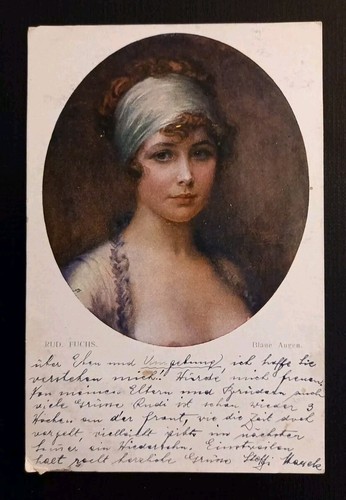 RUD. FUCHS. Blaue Augen.
über Ehen und Umgebung, ich hoffe Sie
verstehen mich! Würde mich freuen
Von meinen Eltern und auch
viele Grüße Rudi ist schon wieder 3
Wochen an der Front, wie die Zeit doch
vergeht, vielleicht gibts im nächsten
ein Wiedersehn. Einstweilen
recht herzliche Grüße Steffi